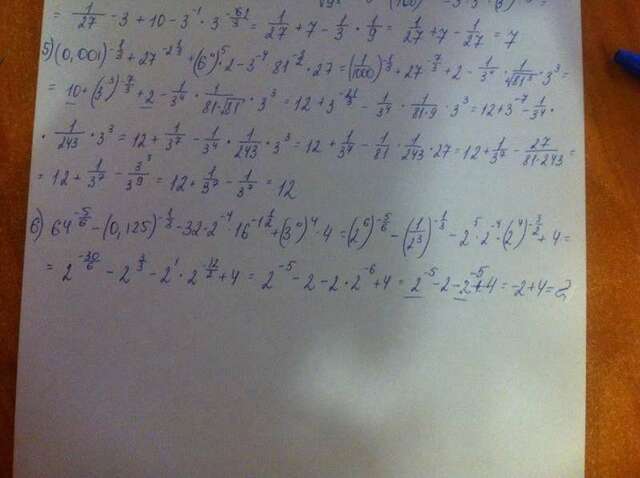 = 1/27 - 3 + 10 - 3^-1 · 3^(-6/3) = 1/27 + 7 - 1/3 · 1/9 = 1/27 + 7 - 1/27 = 7
5) (0,001)^(-1/3) + 27^(-2 1/3) + (6^0)^5 · 2 - 3^-4 · 81^(-3/2) · 27 = (1/1000)^(-1/3) + 27^(-7/3) + 2 - 1/3^4 · 1/√81^3 · 3^3 =
= 10 + (3^3)^(-7/3) + 2 - 1/3^4 · 1/(81·√81) · 3^3 = 12 + 3^(-21/3) - 1/3^4 · 1/(81·9) · 3^3 = 12 + 3^-7 - 1/3^4 ·
· 1/243 · 3^3 = 12 + 1/3^7 - 1/3^4 · 1/243 · 3^3 = 12 + 1/3^7 - 1/81 · 1/243 · 27 = 12 + 1/3^7 - 27/(81·243) =
= 12 + 1/3^7 - 3^3/3^9 = 12 + 1/3^7 - 1/3^7 = 12
6) 64^(-5/6) - (0,125)^(-1/3) - 32·2^-4 · 16^(-1 1/2) + (3^0)^4 · 4 = (2^6)^(-5/6) - (1/2^3)^(-1/3) - 2^5 · 2^-4 · (2^4)^(-3/2) + 4 =
= 2^(-30/6) - 2^(3/3) - 2^1 · 2^(-12/2) + 4 = 2^-5 - 2 - 2 · 2^-6 + 4 = 2^-5 - 2 - 2^-5 + 4 = -2 + 4 = 2